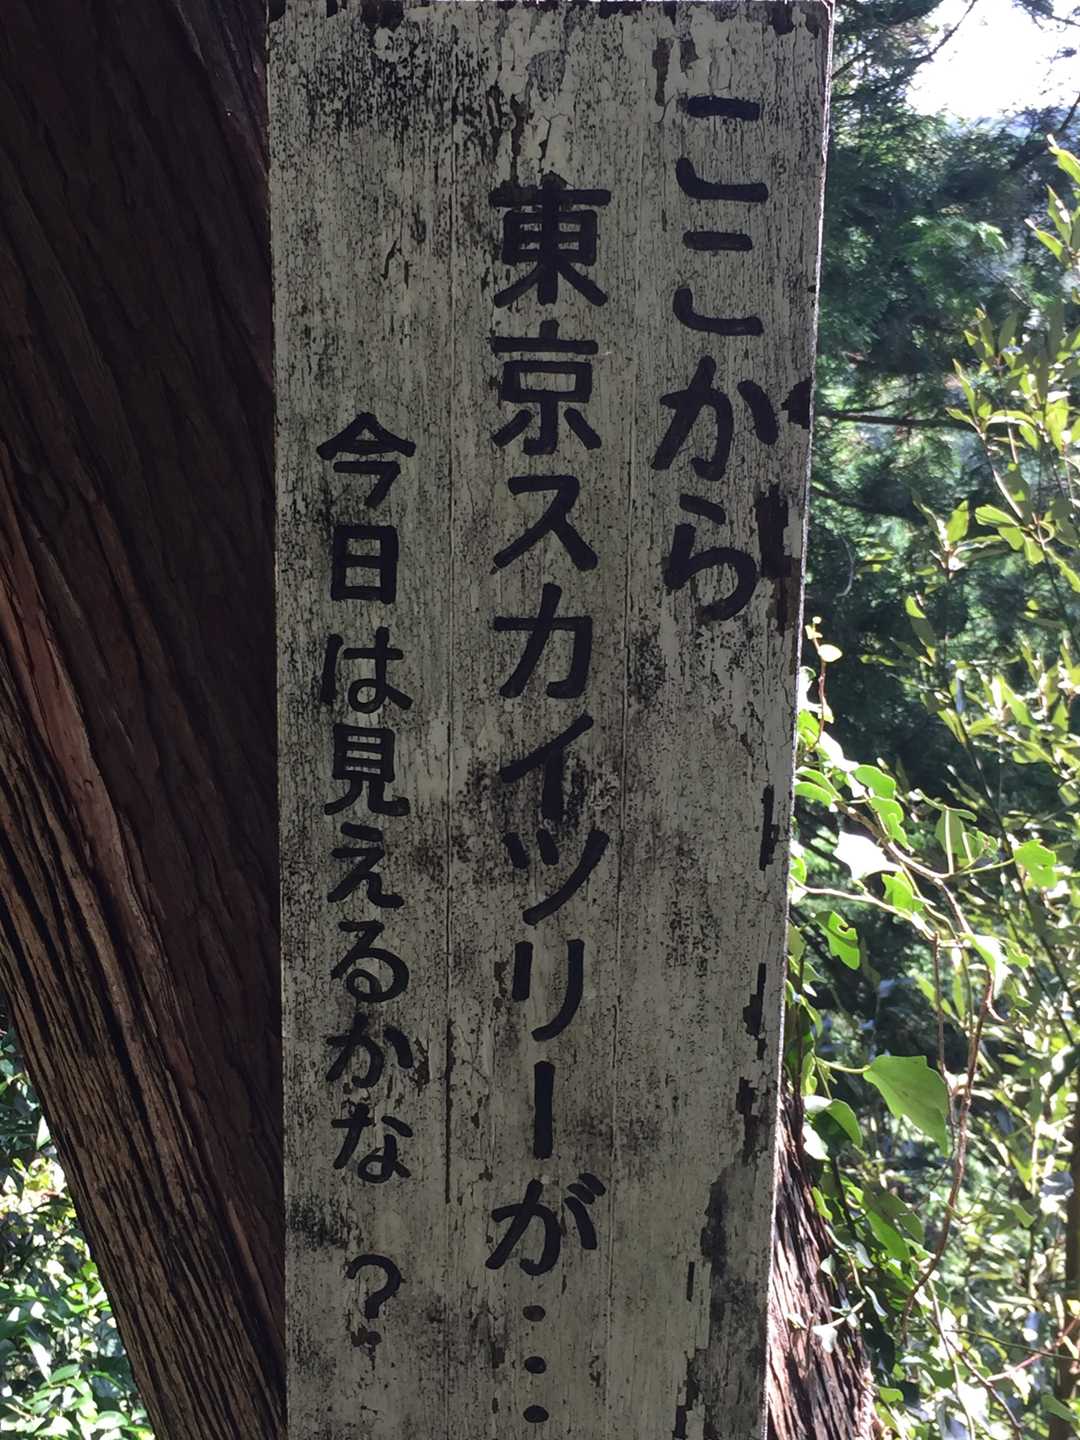 ここから
東京スカイツリーが…
今日は見えるかな？